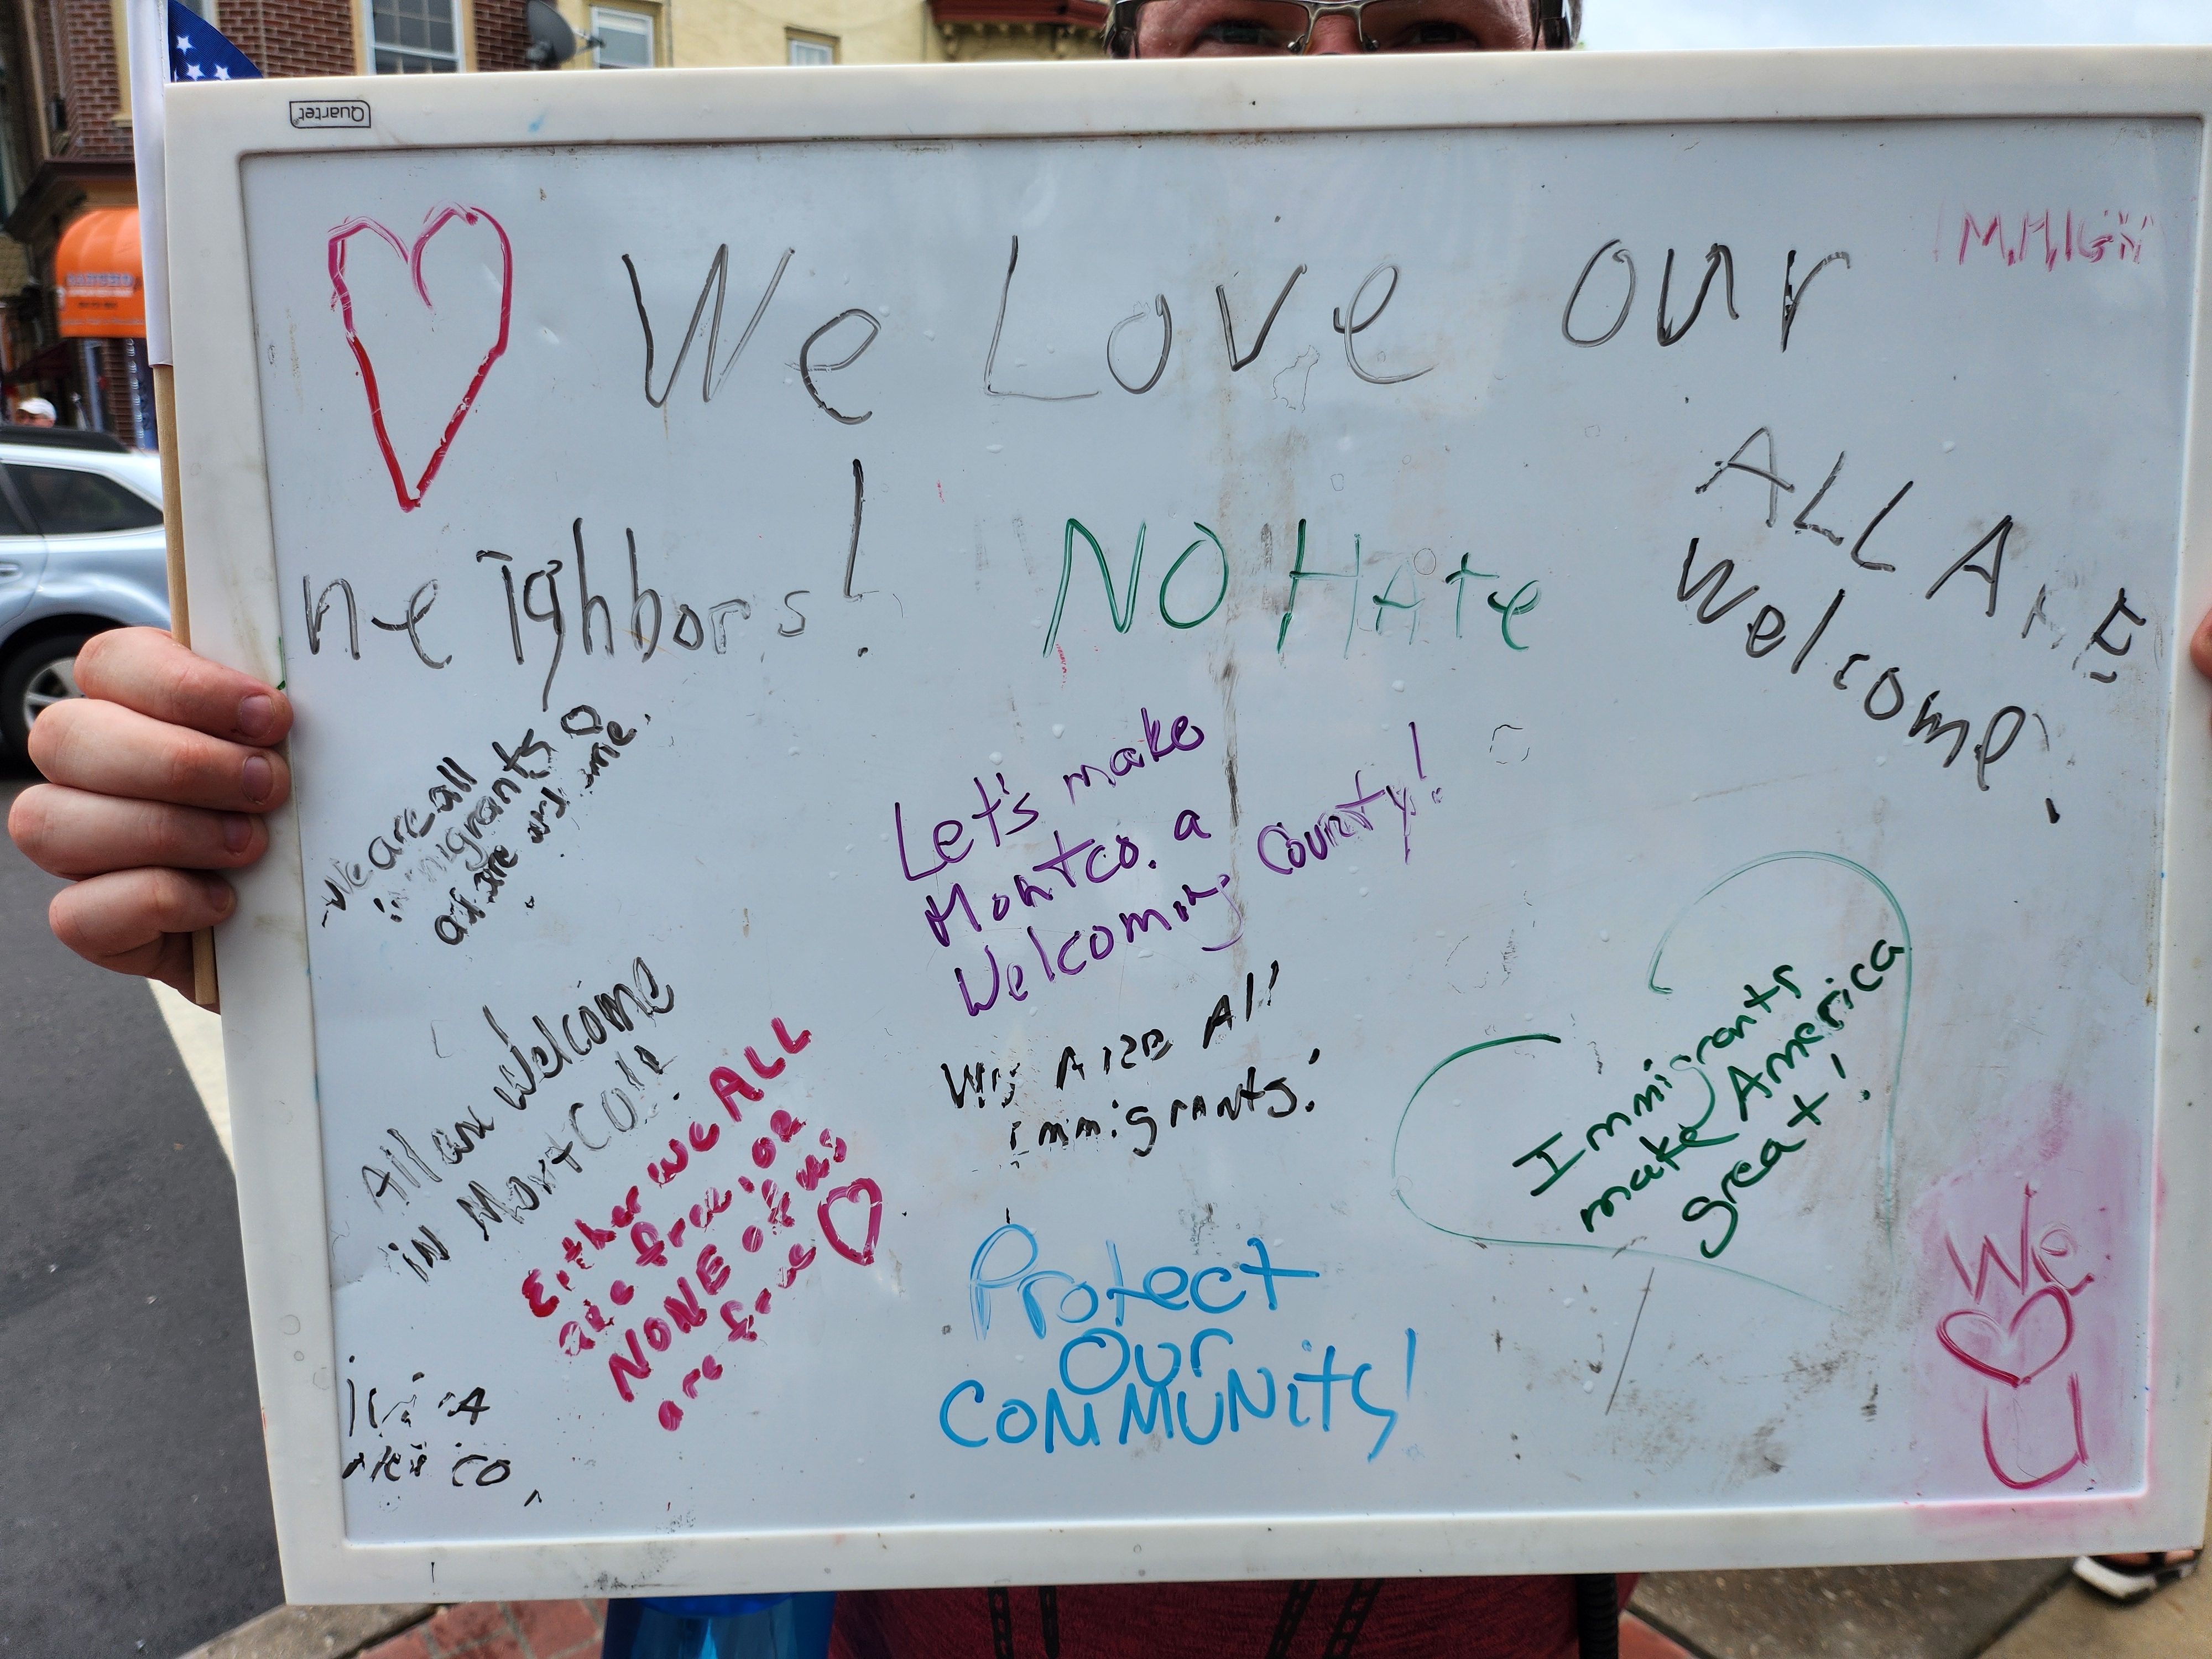 Quartet
We Love our
neighbors!
NO HAte
ALL ArE
Welcome!
IMMIGR
We are all
immigrants
Let's make
Montco. a
Welcoming County!
All are welcome
in MontCO!!
Either we ALL
are free, or
NONE of us
are free
We ARE All
immigrants!
Immigrants
make America
great!
Protect
Our
COMMUNity!
We
U